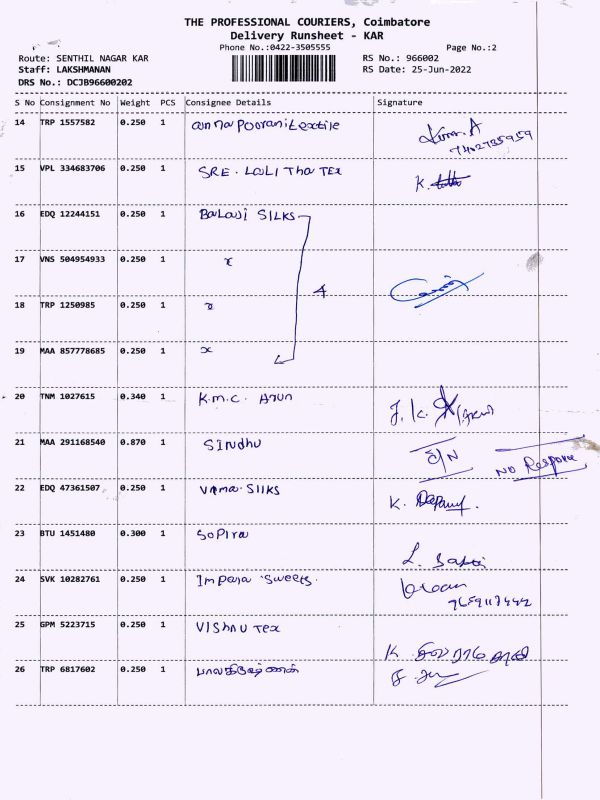 THE PROFESSIONAL COURIERS, Coimbatore
Delivery Runsheet - KAR
Phone No.:0422-3505555
Page No.:2
Route: SENTHIL NAGAR KAR
RS No.: 966002
Staff: LAKSHMANAN
RS Date: 25-Jun-2022
DRS No.: DCJB96600202
S No Consignment No Weight PCS Consignee Details Signature
14 TRP 1557582 0.250 1 annapoorani textile
7402735959
15 VPL 334683706 0.250 1 SRE. LALI Tha TEx K.
16 EDQ 12244151 0.250 1 BaLaJi SILKS
17 VNS 504954933 0.250 1 x
4
18 TRP 1250985 0.250 1 x
19 MAA 857778685 0.250 1 x
20 TNM 1027615 0.340 1 K.m.c. Arun J. K.
21 MAA 291168540 0.870 1 Sindhu D/N NO Response
22 EDQ 47361507 0.250 1 vama. SIlks K.
23 BTU 1451480 0.300 1 Sopira
L.
24 SVK 10282761 0.250 1 Impala Sweets.
7659117442
25 GPM 5223715 0.250 1 VIShnU Tex
K
26 TRP 6817602 0.250 1